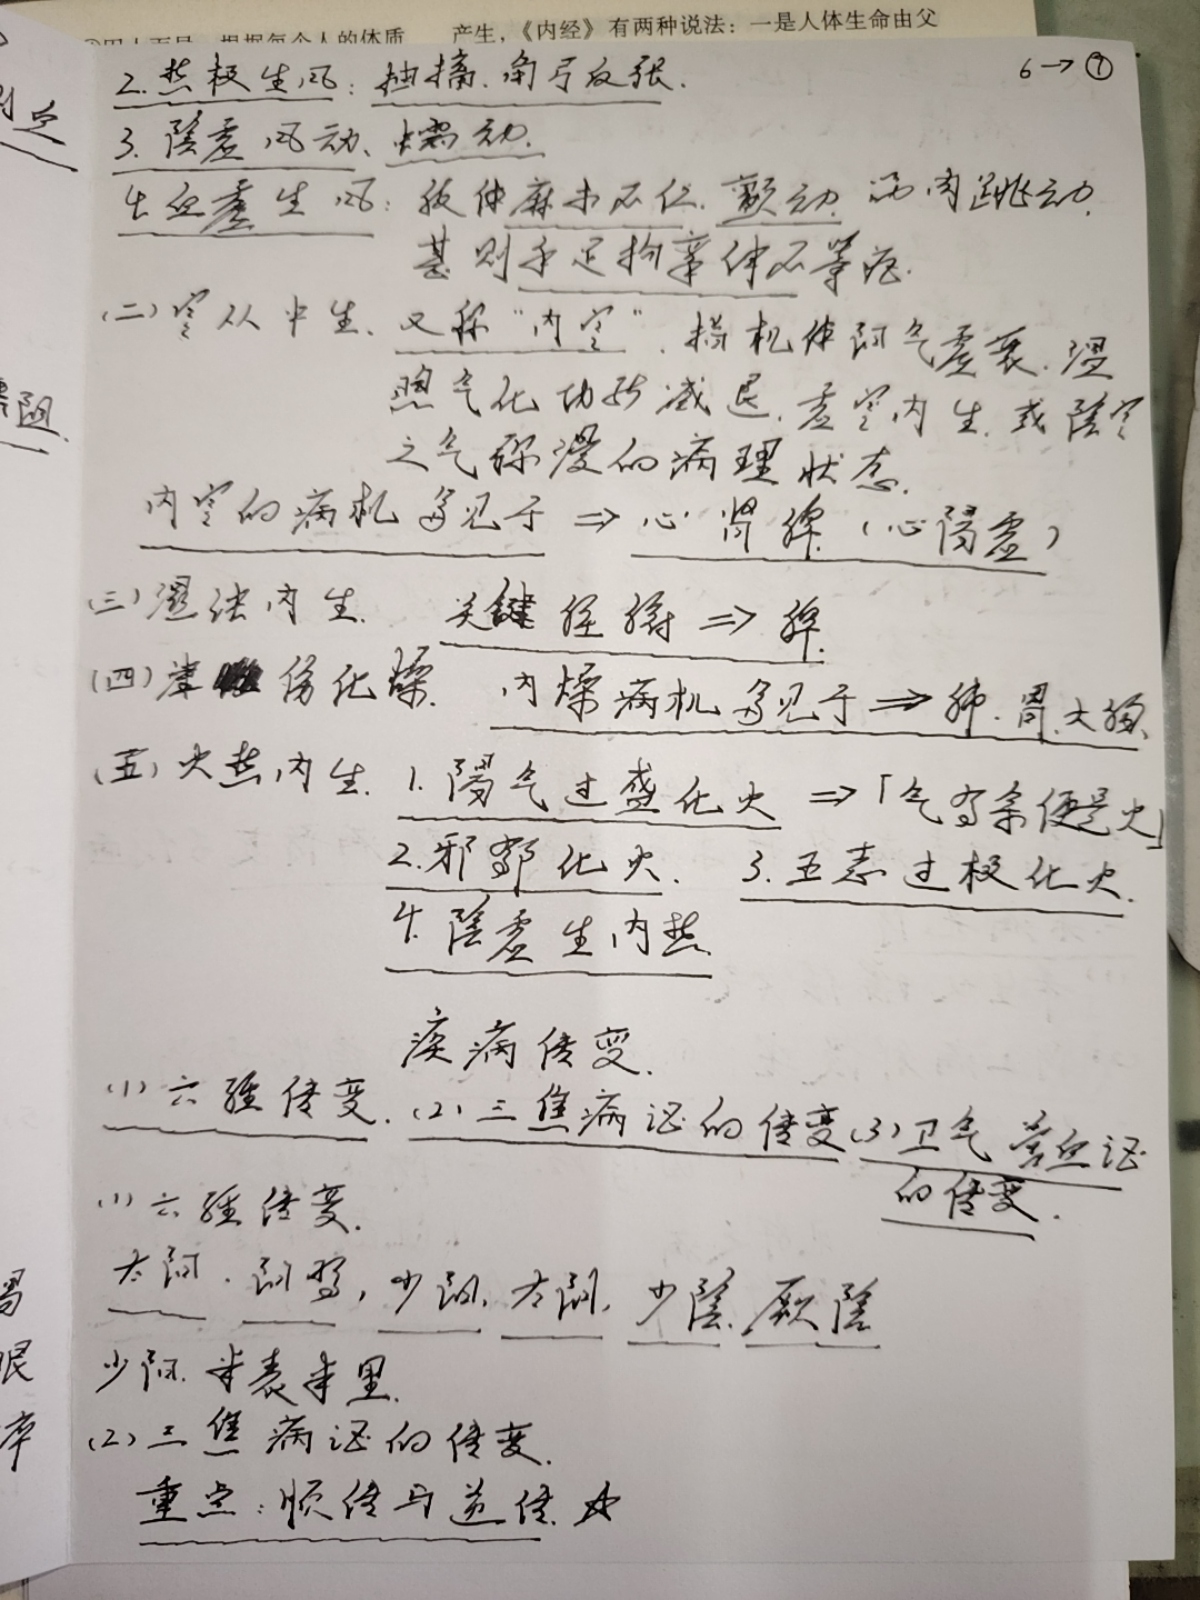 产生，《内经》有两种说法：一是人体生命由父
6→⑦
2.热极生风：抽搐.角弓反张.
3.陰虚风动、蠕动.
4.血虚生风：肢体麻木不仁.颤动.
肉跳动.
甚则手足拘挛伸不等症.
(二)寒从中生、又称"内寒".指机体阳气虚衰.温
煦气化功能减退.虚寒内生.或陰寒
之气弥漫的病理状态.
内寒的病机多见于⇒心肾脾.(心陽虚)
(三)湿浊内生. 关键脏腑⇒脾.
(四)津伤化燥. 内燥病机多见于⇒肺.胃.大肠.
(五)火热内生. 1.陽气过盛化火⇒「气有余便是火」
2.邪郁化火. 3.五志过极化火.
4.陰虚生内热.
疾病传变.
(1)六经传变.(2)三焦病证的传变(3)卫气营血证
的传变.
(1)六经传变.
太阳.阳明,少阳,太阴,少陰.厥陰
少阳.半表半里.
(2)三焦病证的传变.
重点:顺传与逆传.☆